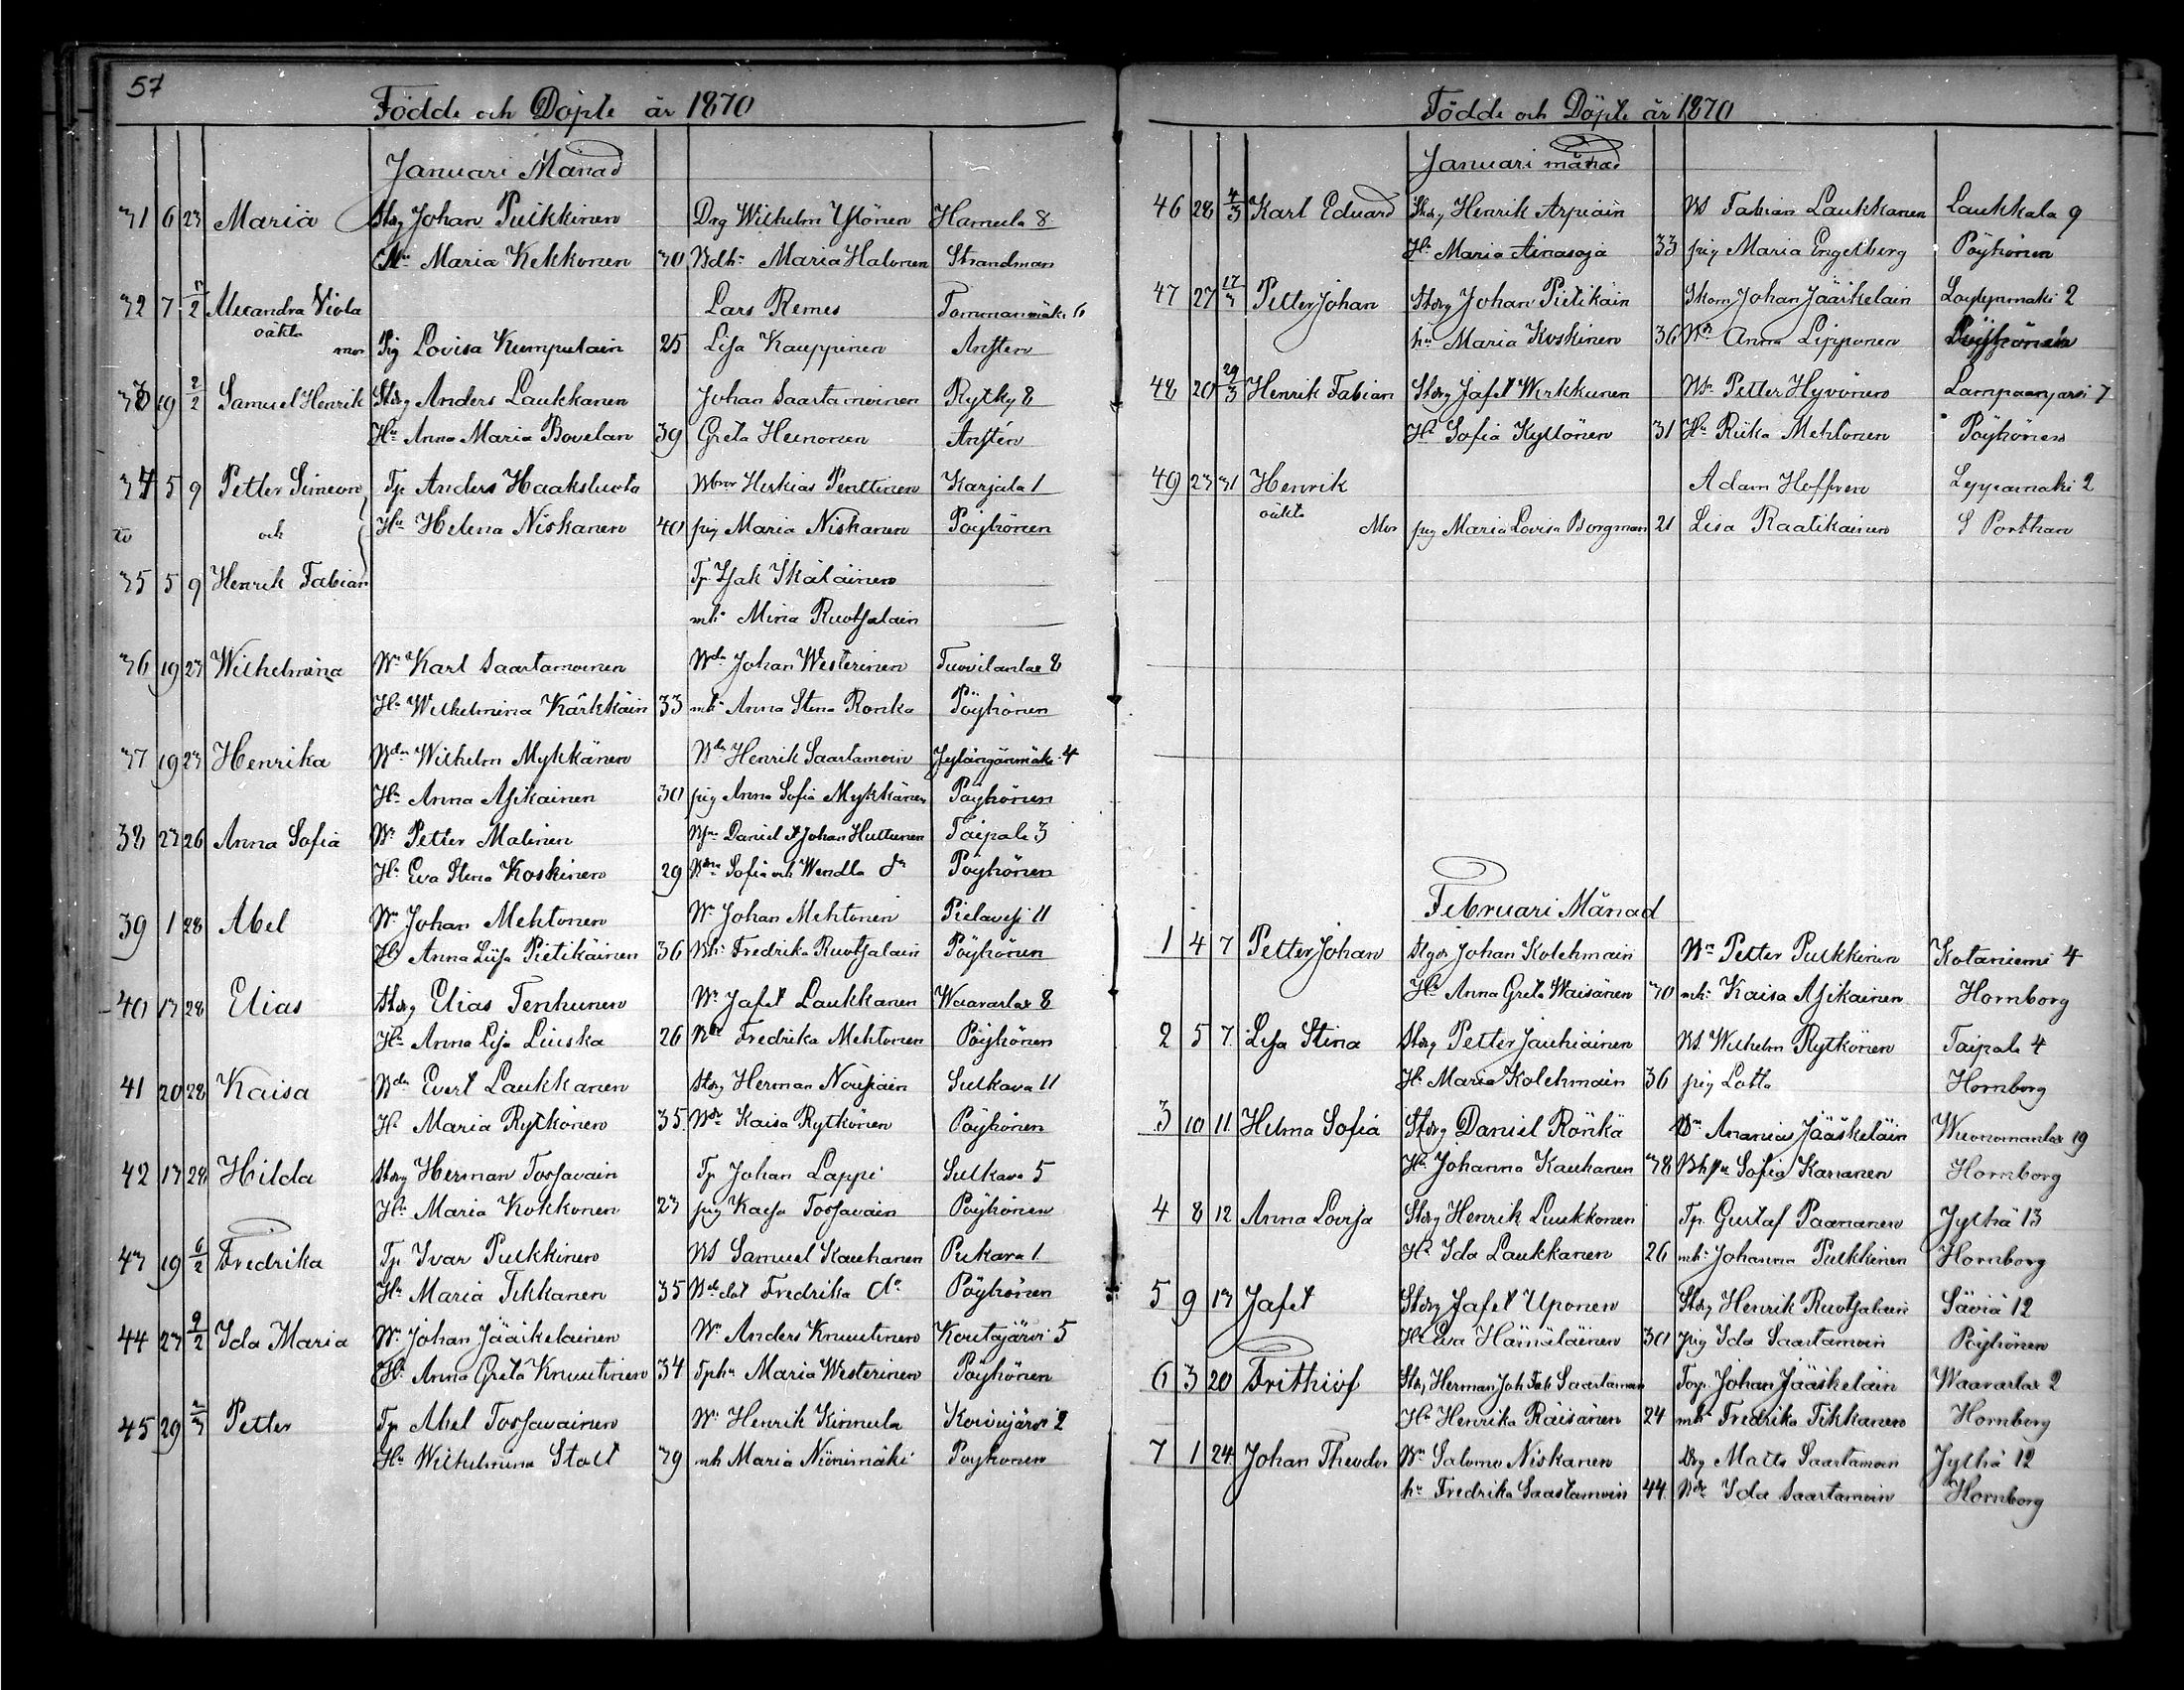 57
Födde och Döpte år 1870
Januari Månad
31 6 23 Maria Stdrg Johan Puikkinen Drg Wilhelm Ylönen Hamula 8
Hu Maria Kekkonen 30 Bdhr Maria Halonen Strandman
32 7 2 Alexandra Viola Lars Remes Tommanmäki 6
oäkta
mor Pig Lovisa Kumpulain 25 Lisa Kauppinen Anstén
33 19 2/2 Samuel Henrik Stdrg Anders Laukkanen Johan Saastamoinen Rytky 8
Hu Anna Maria Bovelan 39 Greta Heinonen Anstén
34 5 9 Petter Simeon Tp Anders Haaksluoto Heskias Penttinen Karjala 1
tv och Hu Helena Niskanen 40 pig Maria Niskanen Pöyhönen
35 5 9 Henrik Fabian Tp. Isak Ikäläinen
mh Mina Ruotsalain
36 19 23 Wilhelmina Wn Karl Saastamoinen Wdn Johan Westerinen Tuovilanlax 8
Hu Wilhelmina Kärkkäin 33 mh Anna Stina Ronka Pöyhönen
37 19 23 Henrika Wdn Wilhelm Mykkänen Wdn Henrik Saastamoin Jylängönmäki 4
Hu Anna Asikainen 30 pig Anna Sofia Mykkänen Pöyhönen
38 23 26 Anna Sofia Wn Petter Malinen Daniel o Johan Huttunen Taipale 3
Hu Eva Stina Koskinen 29 Sofia och Wendla do Pöyhönen
39 1 28 Abel Wn Johan Mehtonen Wn Johan Mehtonen Pielavesi 11
Hu Anna Liisa Pietikäinen 36 Fredrika Ruotsalain Pöyhönen
40 13 28 Elias Stdrg Elias Tenhunen Wn Jafet Laukkanen Waavarlax 8
Hu Anna Lisa Liuska 26 Fredrika Mehtonen Pöyhönen
41 20 28 Kaisa Wdn Evert Laukkanen Stdrg Herman Nousiain Sulkava 11
Hu Maria Rytkönen 35 Kaisa Rytkönen Pöyhönen
42 13 28 Hilda Stdrg Herman Tossavain Tp Johan Lappi Sulkava 5
Hu Maria Kokkonen 23 pig Kaisa Tossavain Pöyhönen
43 19 6/2 Fredrika Tp Ivar Pulkkinen Ws Samuel Kauhanen Pukara 1
Hu Maria Tikkanen 35 Fredrika do Pöyhönen
44 23 9/2 Ida Maria Wn Johan Jääskelainen Wn Anders Knuutinen Koutajärvi 5
Hu Anna Greta Knuutinen 34 Tphu Maria Westerinen Pöyhönen
45 29 2/3 Petter Tp Abel Tossavainen Wn Henrik Kinnula Koivujärvi 2
Hu Wilhelmina Stolt 39 mh Maria Niinimäki Poyhonen
Födde och Döpte år 1870
Januari månad
46 28 4/3 Karl Eduard Stdrg Henrik Arpiain Ws Fabian Laukkanen Laukkala 9
Hu Maria Ainasoja 33 pig Maria Engelberg Pöyhönen
47 27 17/3 Petter Johan Stdrg Johan Pietikäin Skom Johan Jääskelain 2
hu Maria Koskinen 36 Anna Lipponen Pöyhönen
48 20 29/3 Henrik Fabian Stdrg Jafet Wirkkunen Petter Hyvönen Lampaanjarvi 7
Hu Sofia Kyllönen 31 Hu Riika Mehtonen Pöyhönen
49 23 31 Henrik Adam Hoffren Leppamaki 2
oäkta
Mor pig Maria Lovisa Borgman 21 Lisa Raatikainen S Porthan
Februari Månad
1 4 7 Petter Johan Johan Kolehmain Wn Petter Pulkkinen Kotaniemi 4
Hu Anna Greta Waisänen 30 mh Kaisa Asikainen Hornborg
2 5 7 Lisa Stina Stdrg Petter Jauhiainen Ws. Wilhelm Rytkönen Taipale 4
Hu Maria Kolehmain 36 pig Lotta Hornborg
3 10 11 Helma Sofia Stdrg Daniel Rönkä Wn Ananias Jääskeläin Wuonamanlax 19
Hu Johanna Kauhanen 38 Sofia Kananen Hornborg
4 8 12 Anna Lovisa Stdrg Henrik Luukkonen Tp. Gustaf Paananen Jylhä 13
Hu Ida Laukkanen 26 mh Johanna Pulkkinen Hornborg
5 9 13 Jafet Stdrg Jafet Uponen Stdrg Henrik Ruotsalain Säviä 12
Hu Eva Hämäläinen 30 pig Ida Saastamoin Pöyhönen
6 3 20 Frithiof Stdrg Herman Joh Fab Saastamoin Torp. Johan Jääskeläin Waavarlax 2
Hu Henrika Räisänen 24 mh Fredrika Tikkanen Hornborg
7 1 24 Johan Theodor Wn Salomo Niskanen Drg Matts Saastamoin Jylhä 12
hu Fredrika Saastamoin 44 Ida Saastamoin Hornborg